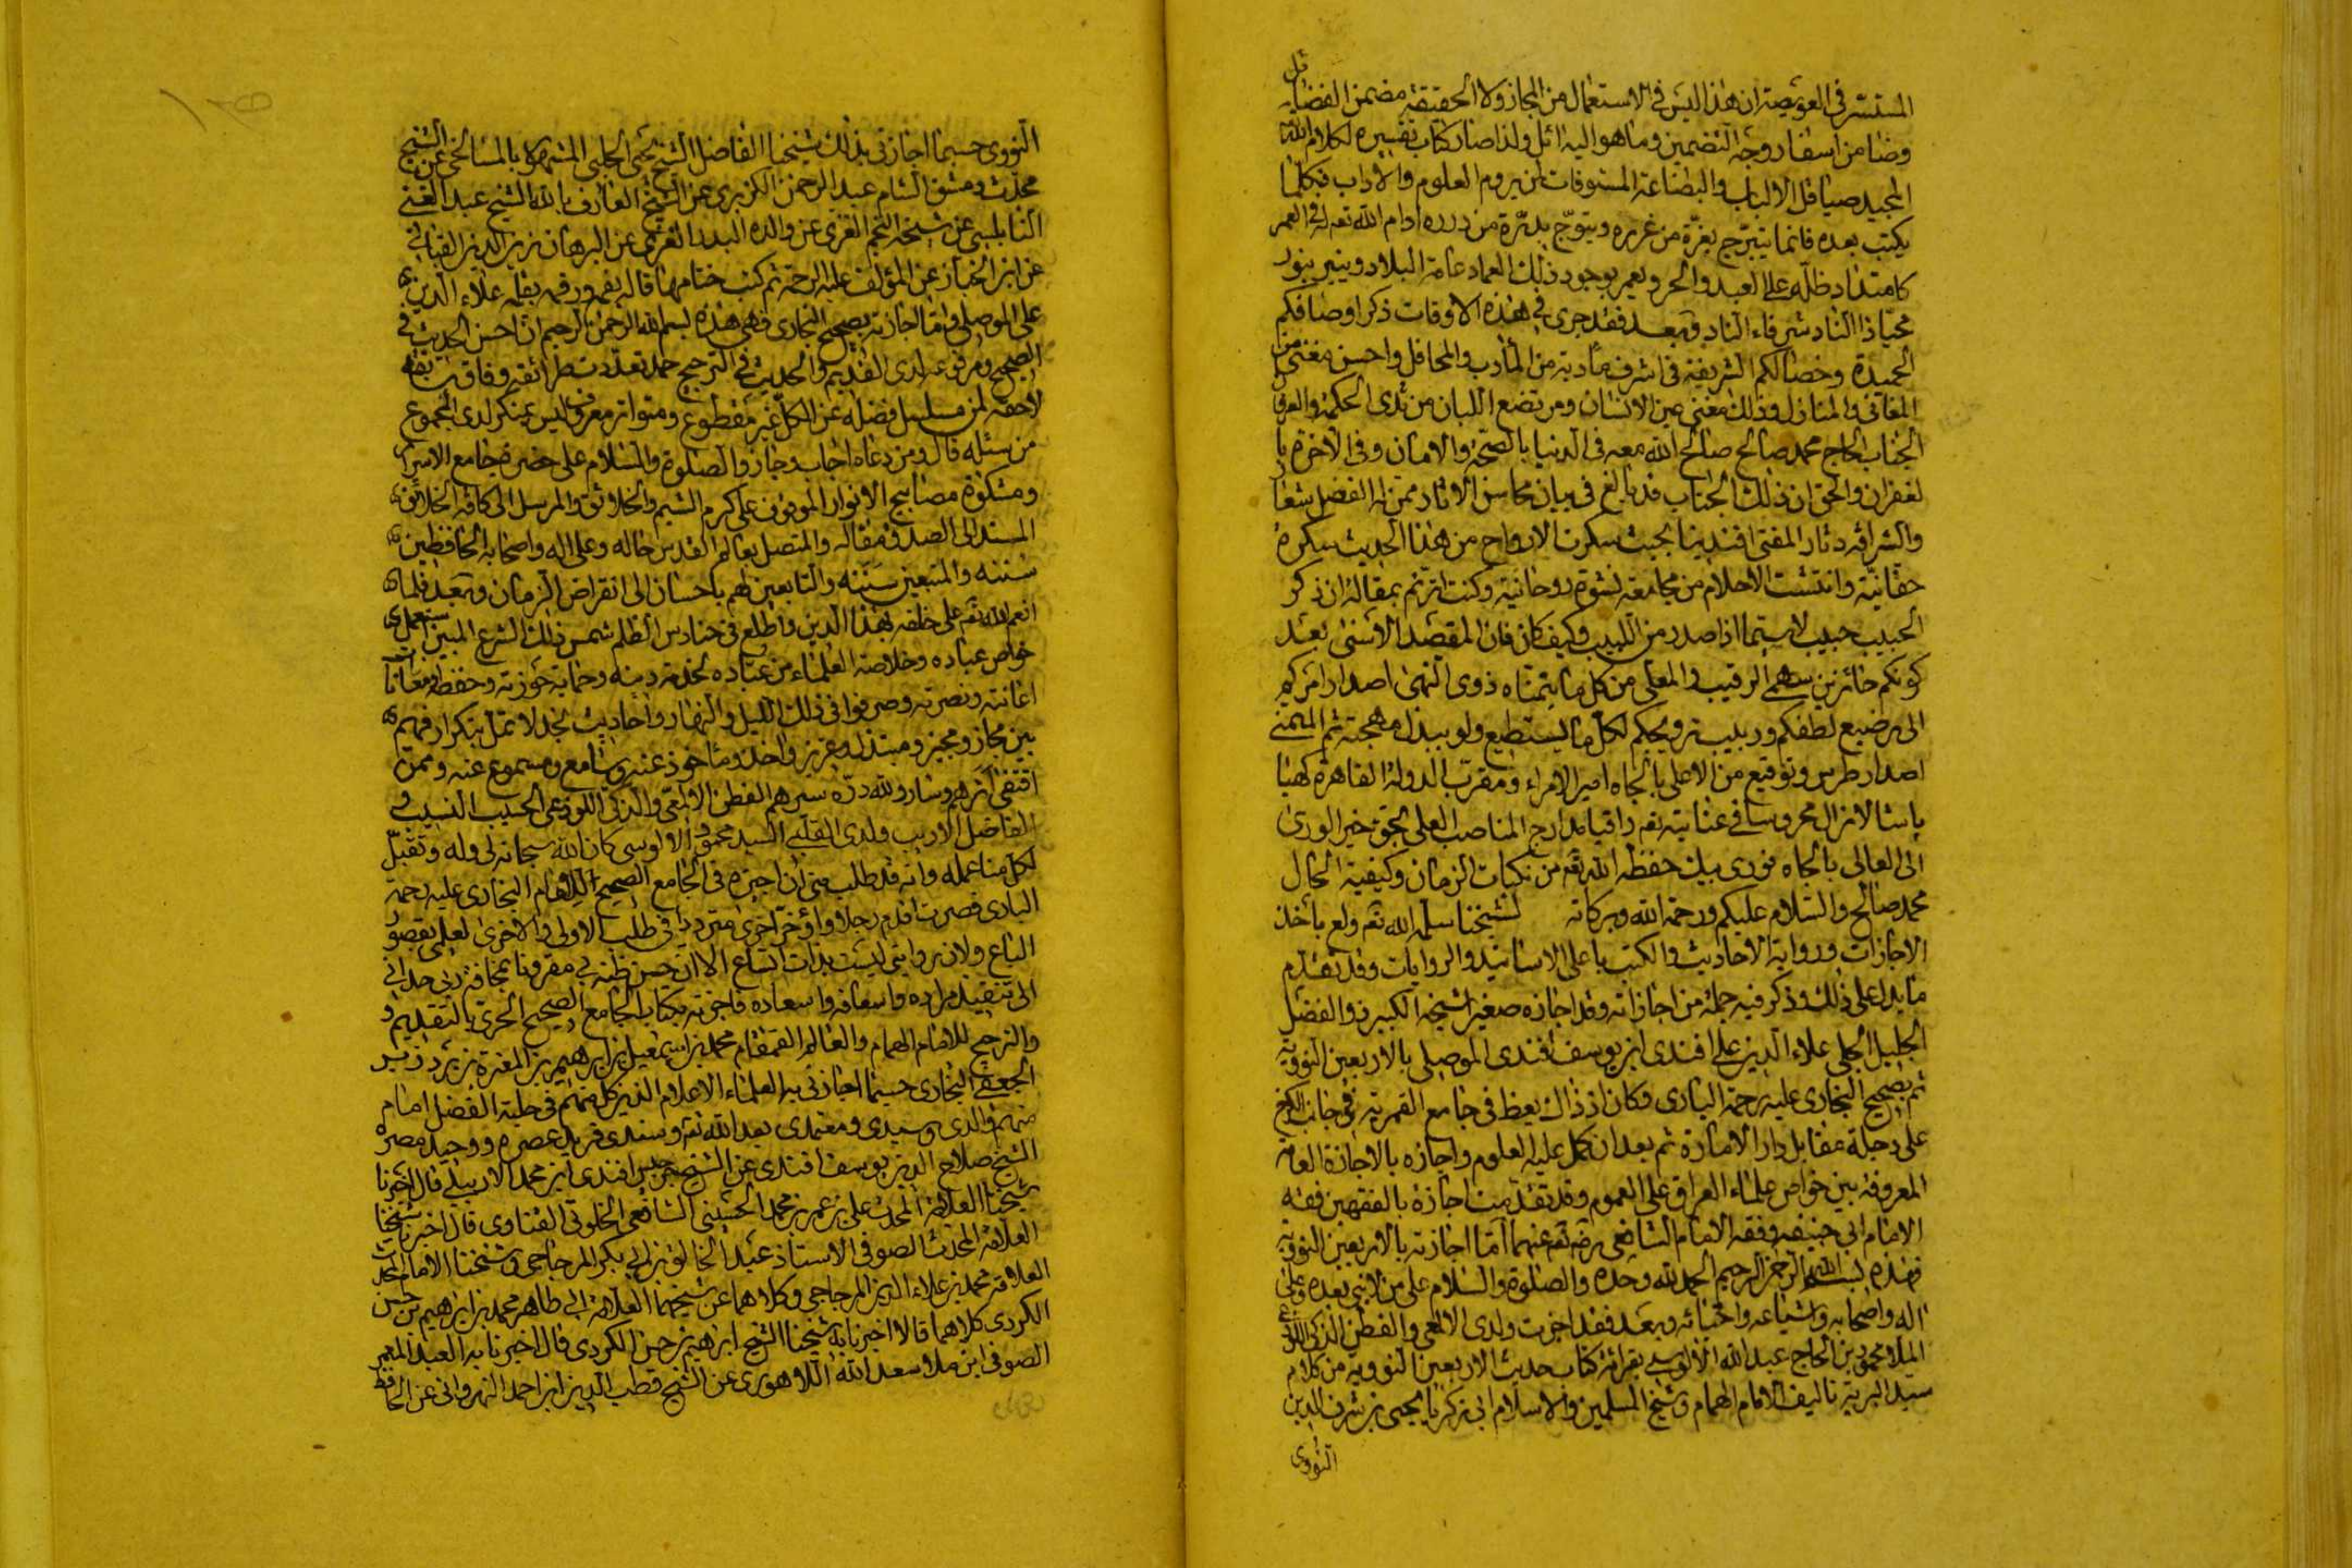 المستتر في العويصة ان هذا ليس في الاستعمال من المجاز ولا الحقيقة مضمن الفضائل
وضامن اسفار وجه التضمين وما هو اليه ائل ولذا صار كتاب تفسيره لكلام الله
المجيد صياقل الالباب والبضاعة المستوفات لمن يروم العلوم والاداب فكلما
يكتب بعده فانما يتبرج بغرة من غرره ويتوج بدرة من درره ادام الله تعه له في العمر
كامتداد ظله على العبد والحر ويعمر بوجود ذلك العماد عامة البلاد وينير بنور
محيا ذا الناد شرفاء الناد وبعد فقد جرى في هذه الاوقات ذكر اوصافكم
الحميدة وخصالكم الشريفة في اشرف مأدبة من المأدب والمحافل واحسن مغنى من
المغاني والمنازل وذلك مغنى عين الانسان ومرتضع اللبان من ثدى الحكمة والعرفا
الجناب الحاج محمد صالح صالح الله معه في الدنيا بالصحة والامان وفي الاخرة با
لغفران والحق ان ذلك الجناب قد بالغ في بيان محاسن الاثار ممن له الفضل شعار
والشرافة دثار المفتي افندينا بحيث سكرت الارواح من هذا الحديث سكرة
حقانية وانتشت الاحلام من مجامعة نشوة روحانية وكنت اترنم بمقالة ان ذكر
الحبيب حبيب لا سيما اذا صدر من اللبيب وكيف كان فان المقصد الاسنى بعد
كونكم حائزين سهم الرقيب والمعلى من كل ما يتمناه ذوى النهى اصدار امركم
الى رضيع لطفكم وربيب ترويحكم لكل ما يستطيع ولو ببذل مهجته ثم المتمنى
اصدار طرس وتوقيع من الاعلى بالجاه امير الامراء ومقرب الدولة القاهرة كهيا
باشا لا زال محروسا في عنايته تعه راقيا مدارج المناصب العلى بحق خير الورى
الى العالى بالجاه نورى بيك حفظه الله تعه من نكبات الزمان وكيفية الحال
محمد صالح والسلام عليكم ورحمة الله وبركاته لشيخنا سلمه الله تعه ولع بأخذ
الاجازات ورواية الاحاديث والكتب باعلى الاسانيد والروايات وقد تقدم
ما يدل على ذلك وذكر فيه جملة من اجازاته وقد اجازه صغير اشيخه الكبير ذو الفضل
الجليل الجلي علاء الدين علي افندى ابن يوسف افندى الموصلي بالاربعين النووية
ثم بصحيح البخارى عليه رحمة البارى وكان اذ ذاك يعظ في جامع القمرية في جانب الكرخ
على دجلة مقابل دار الامارة ثم بعد ان كمل عليه العلوم واجازه بالاجازة العامة
المعروفة بين خواص علماء العراق على العموم وقد تقدمت اجازة بالفقهين فقه
الامام ابي حنيفة وفقه الامام الشافعي رضه تعه عنهما اما اجازته بالاربعين النووية
فهذه بسم الله الرحمن الرحيم الحمد لله وحده والصلوة والسلام على من لا نبي بعده وعلى
اله واصحابه واشياعه واحبائه وبعد فقد اجزت ولدى الالمعي والفطن الذكي اللوذعي
الملا محمود بن الحاج عبد الله الالوسي بقرائة كتاب حديث الاربعين النووية من كلام
سيد البرية تاليف الامام الهمام وشيخ المسلمين والاسلام ابي زكريا يحيى بن شرف الدين
النووى
النووى حسبما اجازني بذلك شيخنا الفاضل الشيخ يحيى الحلبي المشهور بالمسالخي عن الشيخ
محدث دمشق الشام عبد الرحمن الكزبرى عن الشيخ العارف بالله الشيخ عبد الغني
النابلسي عن شيخه النجم الغزى عن والده البدر الغزى عن البرهان بن زين الدين القباني
عن ابن الخباز عن المؤلف عليه الرحمة ثم كتب ختامها قاله بفمه ورقمه بقلمه علاء الدين
على الموصلي واما اجازته بصحيح البخارى فهى هذه بسم الله الرحمن الرحيم ان احسن الحديث في
الصحيح ومرفوعه لدى القديم والحديث في الترجيح حمد تعددت طرائقه وفاق سابقه
لاحقه لمن مسلسل فضله عن الكل غير مقطوع ومتواتر معروف ليس بمنكر لدى المجموع
من سئله قال ومن دعاه اجاب وجاز والصلوة والسلام على حضرة جامع الاسرار
ومشكوة مصابيح الانوار الموقوف على كرم الشيم والخلائق والمرسل الى كافة الخلائق
المسند الى الصدق مقاله والمتصل بعالم القدس حاله وعلى اله واصحابه الحافظين
سننه والمتبعين سننه والتابعين لهم باحسان الى انقراض الزمان وبعد فلما
انعم الله تعه على خلقه بهذا الدين واطلع في حنادس الظلم شمس ذلك الشرع المبين استعمل
خواص عباده وخلاصة العلماء من عباده لخدمة دينه وحماية حوزته وحفظه
اعانته ونصرته وصرفوا في ذلك الليل والنهار واحاديث نجد لا تمل بتكرار فهم
بين مجاز ومجيز ومبتدل وعزيز واخذ ومأخوذ عنه وسامع ومسموع عنه وممن
اقتفى اثرهم وسار ولله دره سيرهم الفطن الالمعي والذكي اللوذعى الحسيب النسيب
الفاضل الاريب ولدى القلبي السيد محمود الالوسي كان الله سبحانه لي وله وتقبل
لكل منا عمله وانه قد طلب مني ان اجيزه في الجامع الصحيح للامام البخارى عليه رحمة
البارى فصرت اقدم رجلا واؤخر اخرى مترددا في طلب الاولى والاخرى لعلمي بقصور
الباع ولان روايتي ليست بذات اتساع الا ان حسن ظنه بي مقرونا بمخافة ربي حداني
الى تنفيذ مراده واسعافه واسعاده فاجزته بكتاب الجامع الصحيح الحرى بالتقديم
والترجيح للامام الهمام والعالم القمقام محمد بن اسمعيل بن ابرهيم بن المغيرة بن بردزبه
الجعفي البخارى حسبما اجازني به العلماء الاعلام الذين كل منهم في حلبة الفضل امام
منهم والدى وسيدى ومعتمدى بعد الله تعه وسندى فريد عصره ووحيد مصره
الشيخ صلاح الدين يوسف افندى عن الشيخ جرجيس افندى ابن محمد الاربيلي قال اخبرنا
شيخنا العلامة المحدث علي بن عمر بن محمد الحسيني الشافعي الخلوتي القناوى قال اخبرنا شيخنا
العلامة المحدث الصوفي الاستاذ عبد الخالق بن ابي بكر المزجاجي وشيخنا الامام المحدث
العلامة محمد بن علاء الدين المزجاجي وكلاهما عن شيخهما العلامة ابي طاهر محمد بن ابرهيم بن حسن
الكردى كلاهما قالا اخبرنا به شيخنا الشيخ ابرهيم بن حسن الكردى قال اخبرنا به العبد المعمر
الصوفي ابن ملا سعد الله اللاهورى عن الشيخ قطب الدين ابن احمد النهرواني عن الحافظ